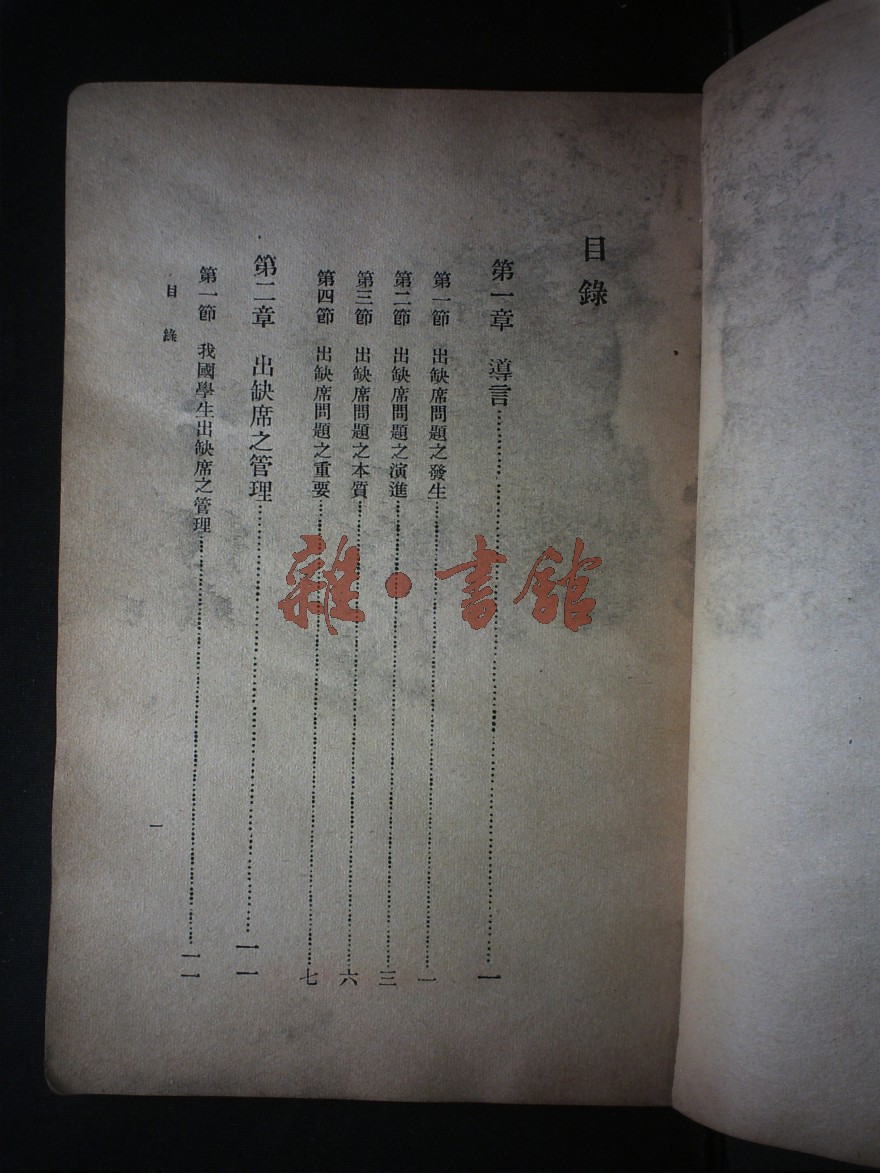 目錄
第一章 導言……一
第一節 出缺席問題之發生……一
第二節 出缺席問題之演進……三
第三節 出缺席問題之本質……六
第四節 出缺席問題之重要……七
第二章 出缺席之管理……一一
第一節 我國學生出缺席之管理……一一
目錄
一
雜·書館